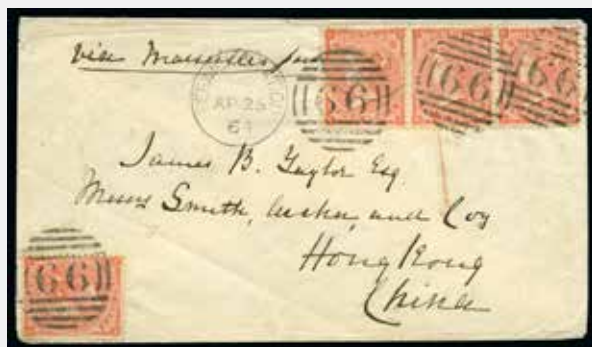 via Marseilles
AP 25
64
66
66
66
James B. Taylor Esq
Messrs Smith, Archer, and Coy
Hong Kong
China
66